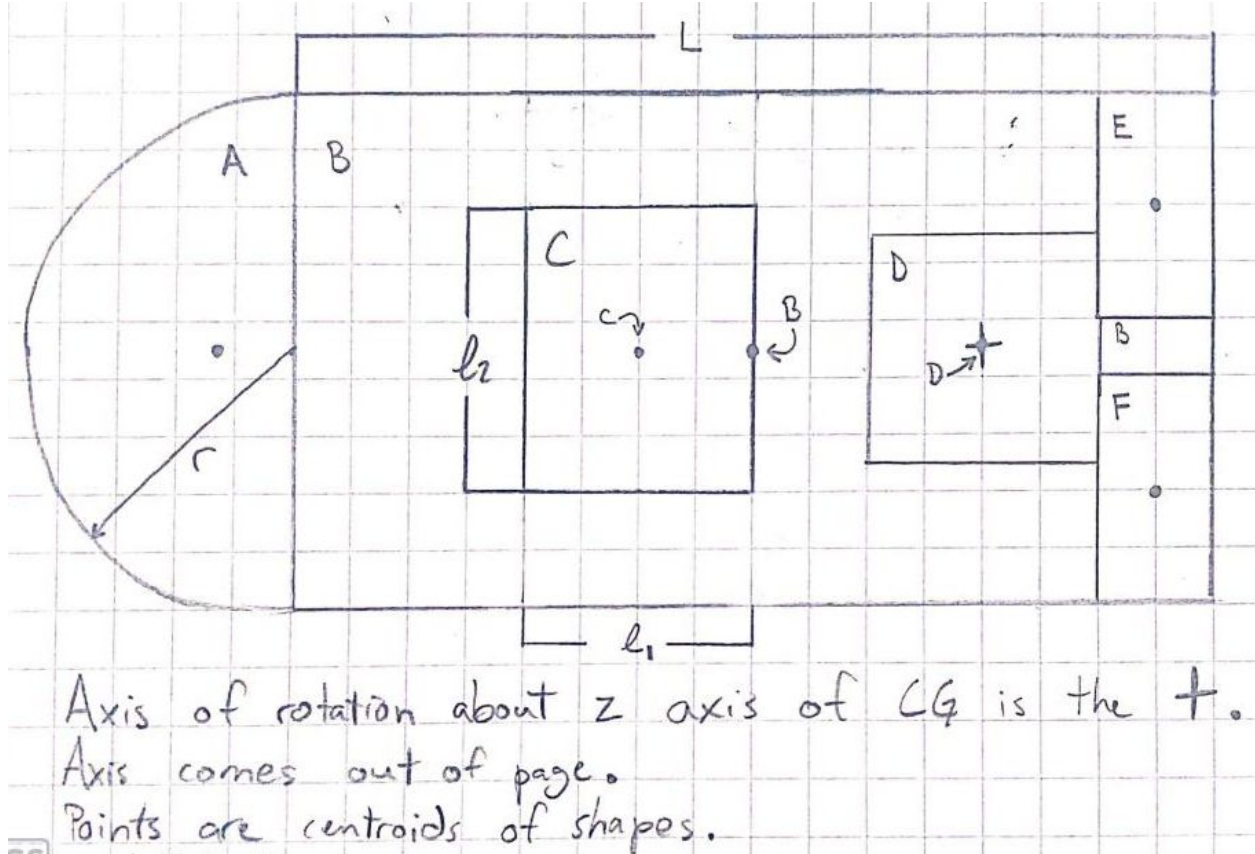 L
A
B
E
C
D
B
C
l₂
B
D
F
r
l₁
Axis of rotation about z axis of CG is the +.
Axis comes out of page.
Points are centroids of shapes.